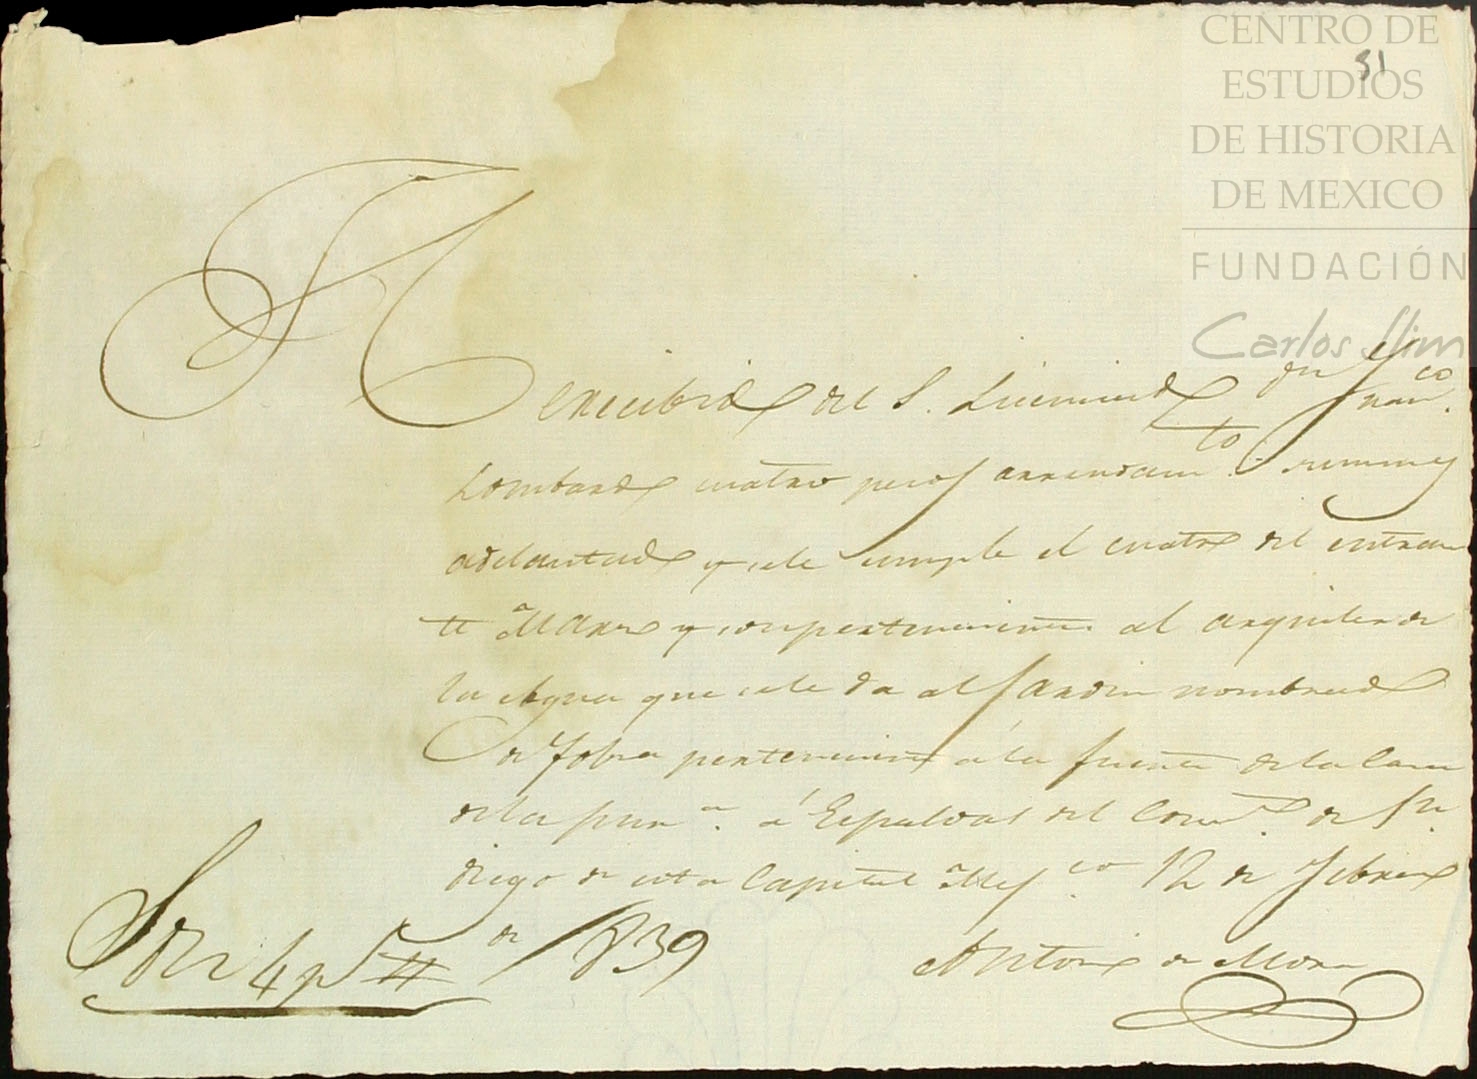 CENTRO DE
ESTUDIOS
DE HISTORIA
DE MEXICO
FUNDACIÓN
Carlos Slim
51
He recibido del S. Licenciado dn Fran.co
Lombardo cuatro pesos arrendam.to
adelantado y se le cumple el cuatro del entran
te Marzo y son pertenecientes al arquiler de
la Agua que se le da al Jardin nombrado
de pertenecientes á la fuente de la Casa
de la á Espaldas del Conv.to de Sn
diego de esta Capital Mej.co 12 de Febrero
de 1839
Son 4 ps
Antonio de Mora